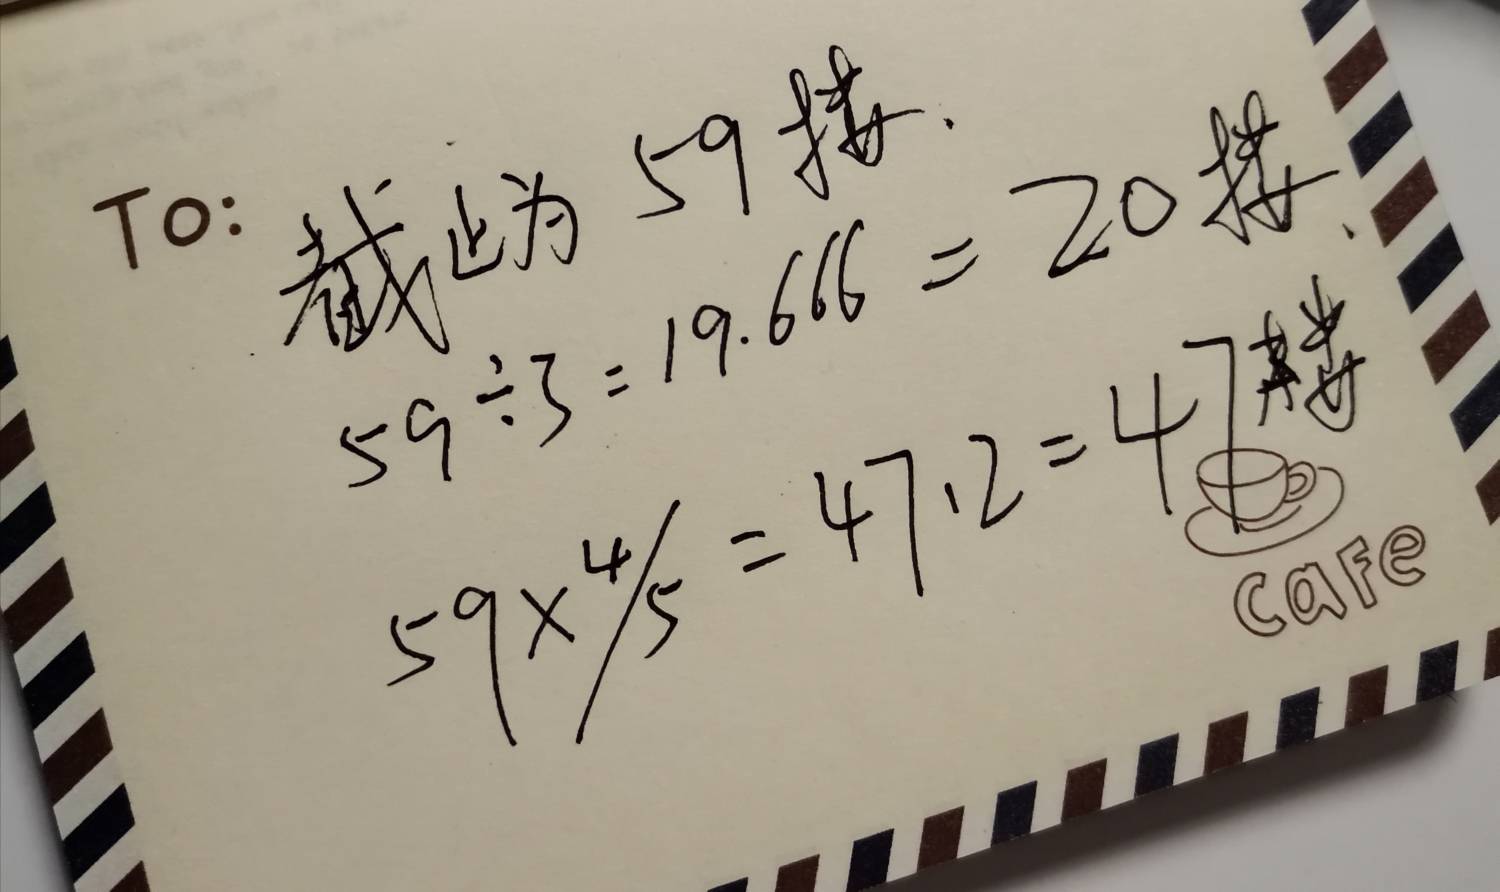 To: 截止为 59 楼.
59÷3=19.666=20楼.
59×4/5=47.2=47楼
cafe